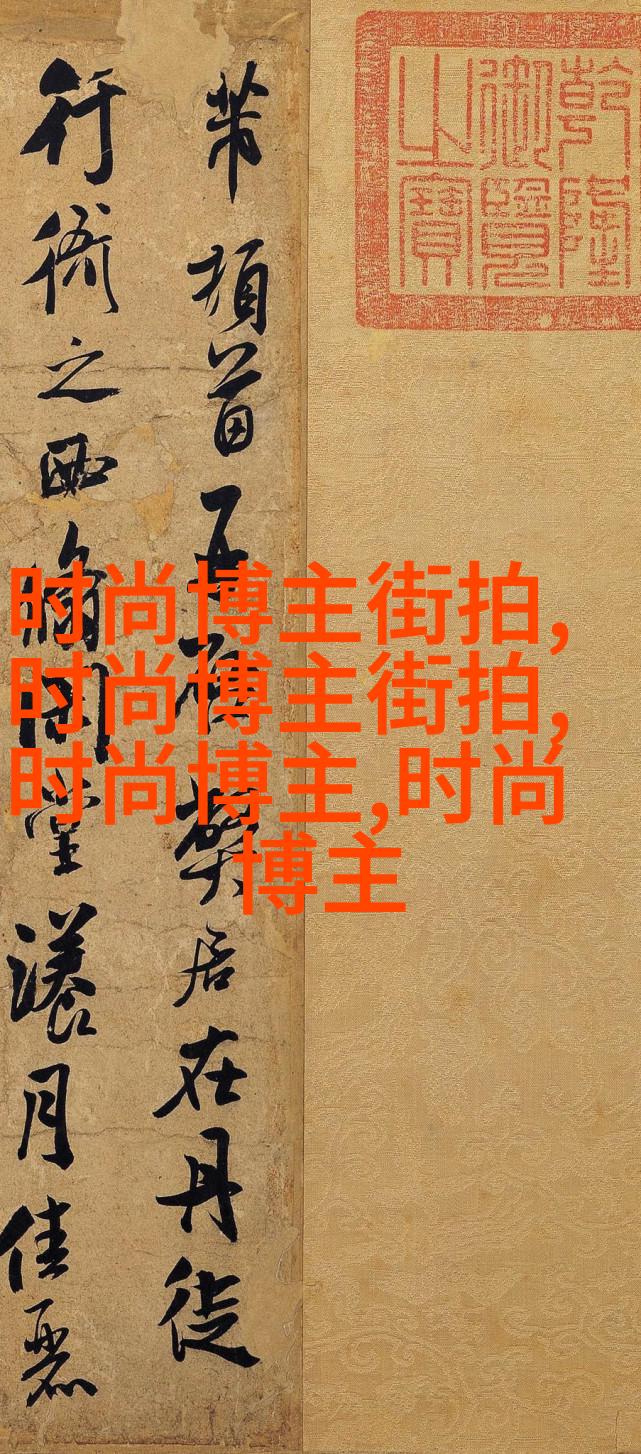 乾隆
御覽
之寶
芾頓首再啟弊居在丹徒
行衙之西翛閑堂漾月佳麗
时尚博主街拍,
时尚博主街拍,
时尚博主,时尚
博主